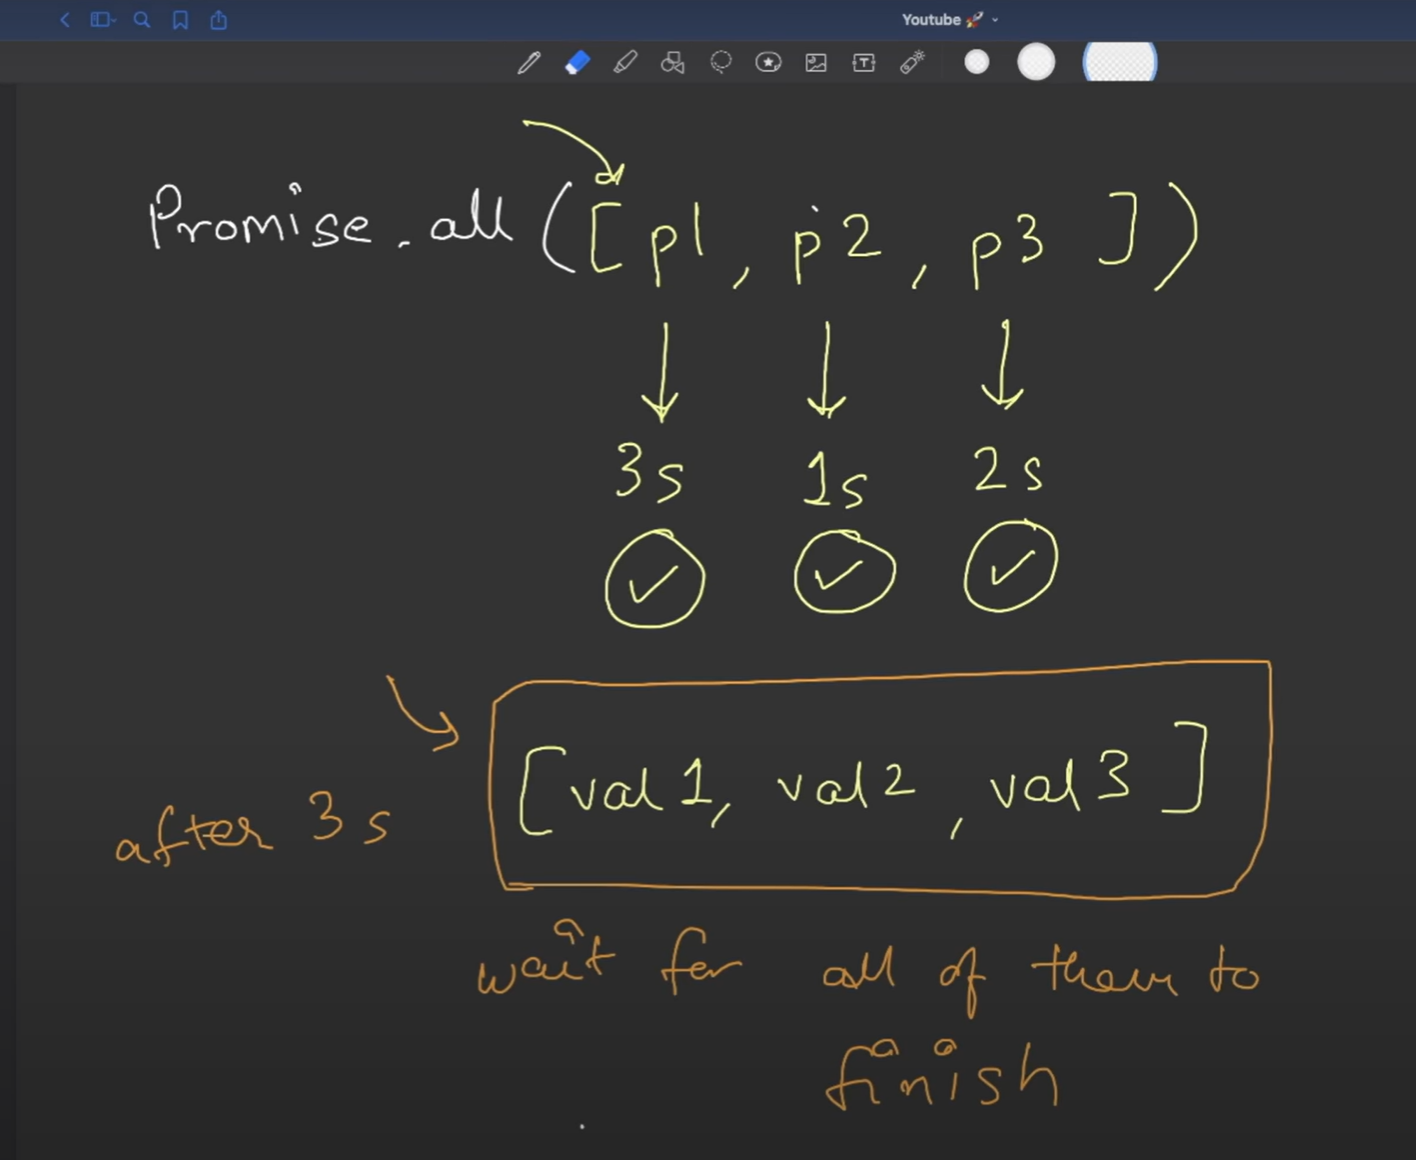 Youtube 🚀
Promise.all([p1, p2, p3])
3s 1s 2s
[val1, val2, val3]
after 3s
wait for all of them to
finish